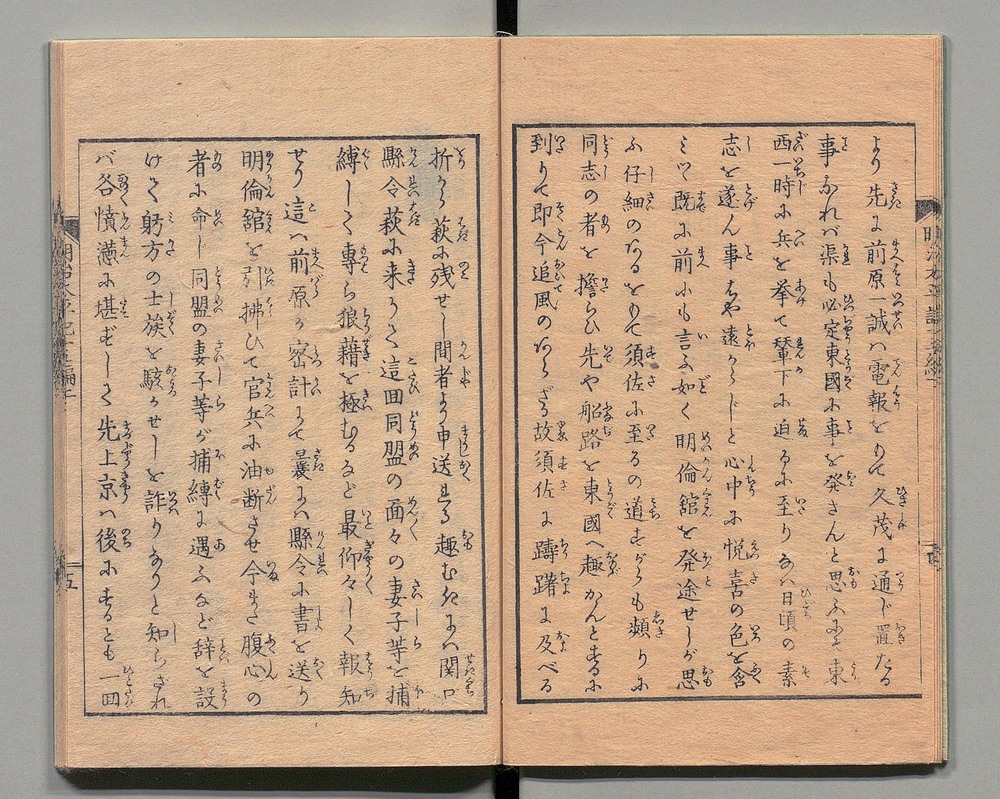 より先に前原一誠ハ電報をもて久茂に通じ置たる
事なれバ渠も必定東國に事を発さんと思ふにぞ東
西一時に兵を挙て輦下に迫るに至りなバ日頃の素
志を遂ん事も遠からじと心中に悦喜の色を含
ミツ既に前にも言ふ如く明倫舘を発途せしが思
ふ仔細のあるをもて須佐に至るの道すがらも頻りに
同志の者を擔らひ先や船路を東國へ趣かんとするに
到りて即今追風のあらざる故須佐に躊躇に及べる
折から萩に残せし間者より申送れる趣むきにハ関口
縣令萩に来りて這回同盟の面々の妻子等を捕
縛して專ら狼藉を極むるなど最仰々しく報知
せり這ハ前原が密計にて曩にハ縣令に書を送り
明倫舘を引拂ひて官兵に油断させ今また腹心の
者に命じ同盟の妻子等が捕縛に遇ふなど辞を設
けて躬方の士族を駭かせしを詐りなりと知らざれ
バ各憤懣に堪ずして先上京ハ後にするとも一回
五